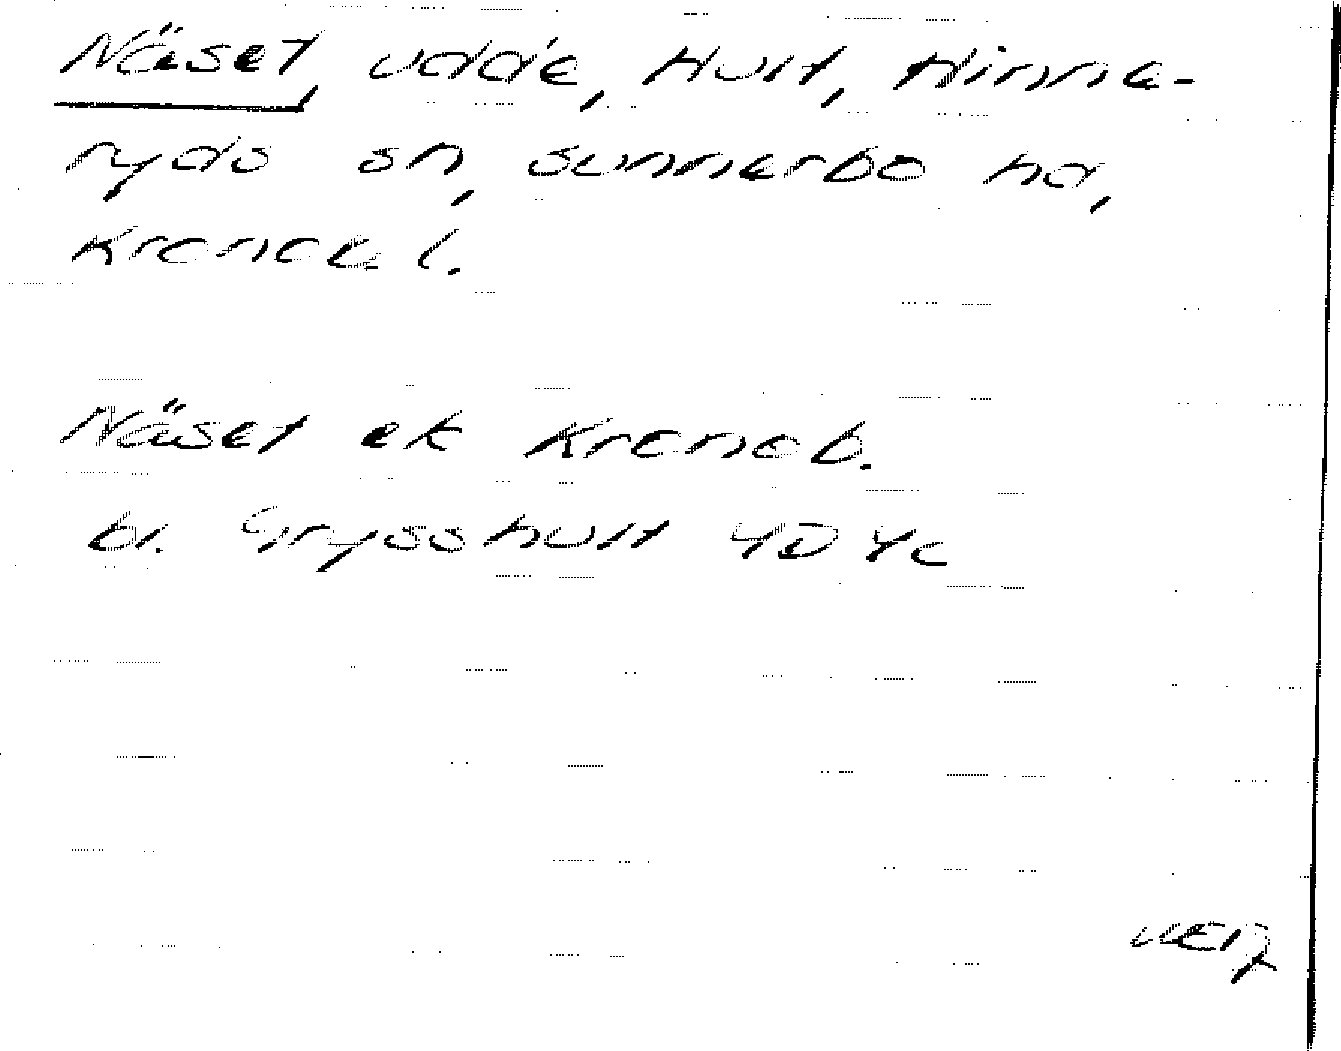 Näset, udde, Hult, Hinne-
ryds sn, Sunnerbo hd,
Kronob. l.
Näset ek Kronob.
bl. Grysshult 4D 4c